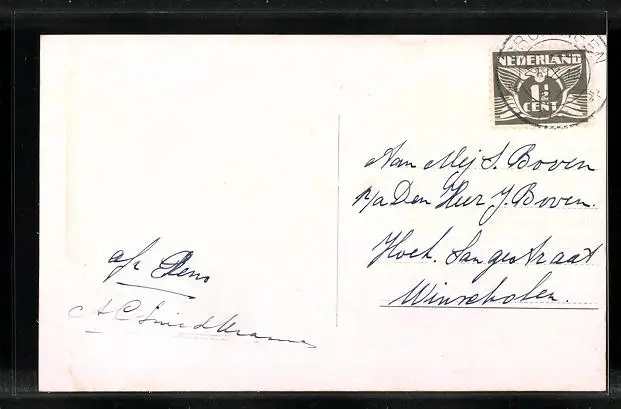 GRONINGEN
NEDERLAND
1½
CENT
Aan Mej S. Boven
p/a Den Heer J. Boven.
Hoek. Langestraat
Winschoten.
afz